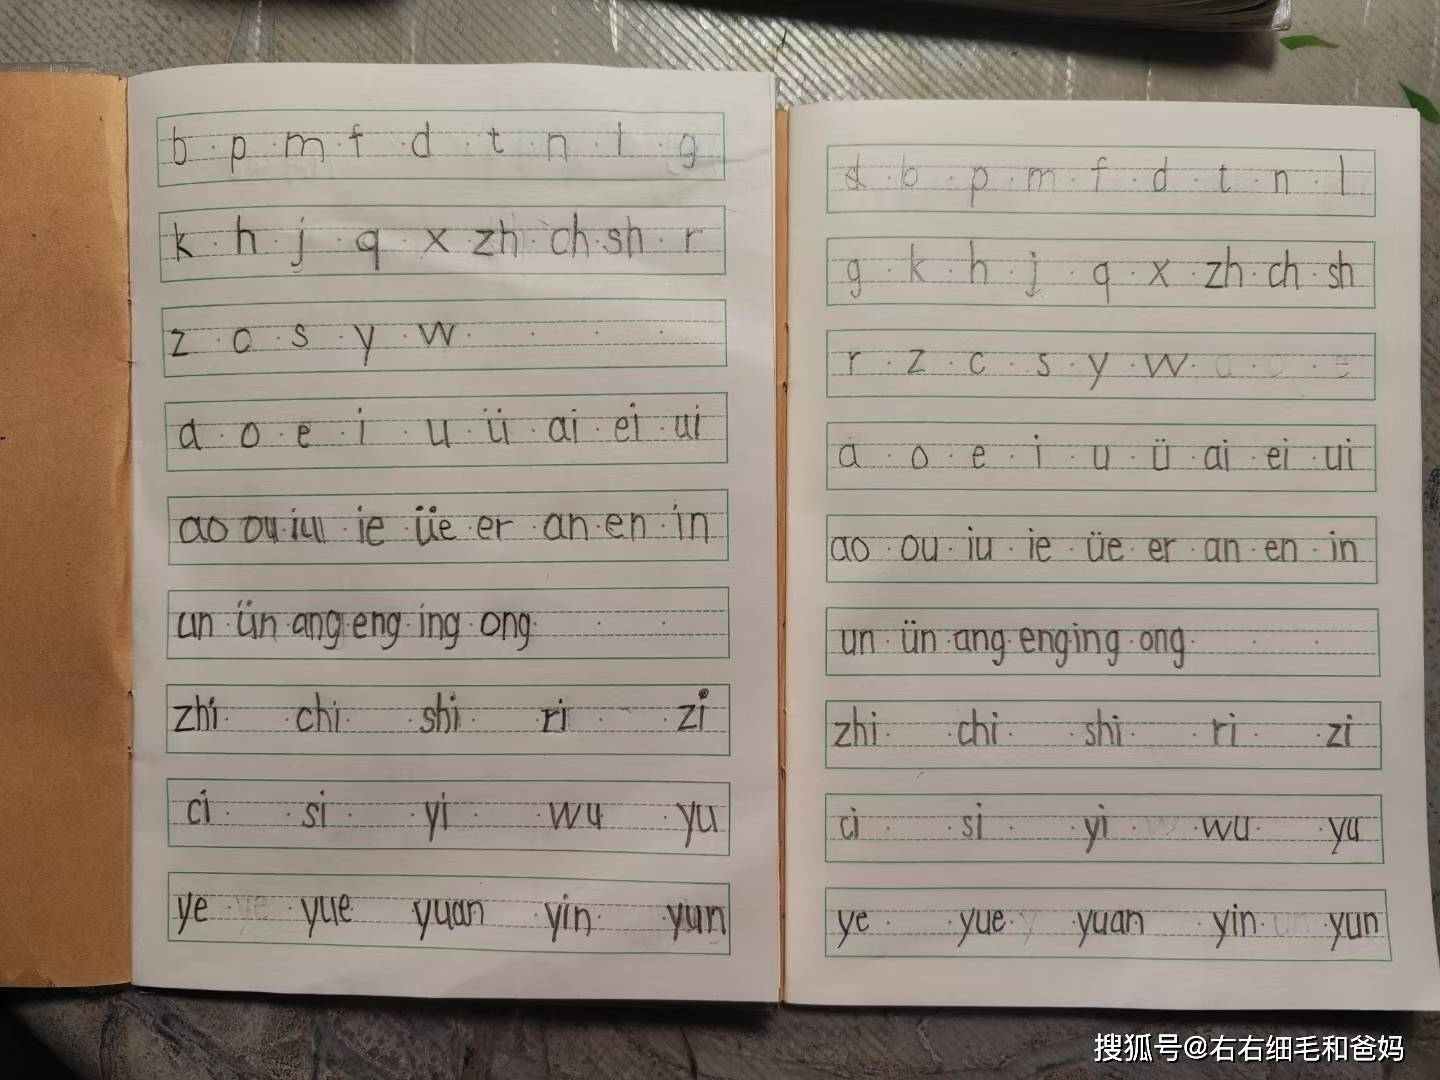 b p m f d t n l g
k h j q x zh ch sh r
z c s y w
a o e i u ü ai ei ui
ao ou iu ie üe er an en in
un ün ang eng ing ong
zhi chi shi ri zi
ci si yi wu yu
ye yue yuan yin yun
b p m f d t n l
g k h j q x zh ch sh
r z c s y w
a o e i u ü ai ei ui
ao ou iu ie üe er an en in
un ün ang eng ing ong
zhi chi shi ri zi
ci si yi wu yu
ye yue yuan yin yun
搜狐号@右右细毛和爸妈